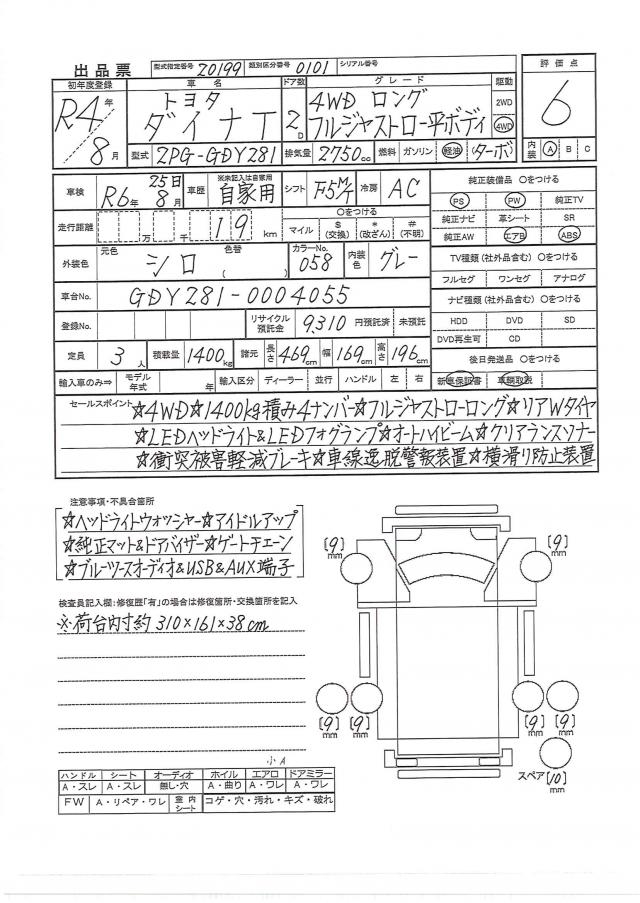 出品票 型式指定番号 20199 類別区分番号 0101 シリアル番号
初年度登録 車名 ドア数 グレード 駆動 評価点
R4年/8月 トヨタ ダイナT 2D 4WD ロング フルジャストロー平ボディ 2WD 4WD 6
型式 2PG-GDY281 排気量 2750cc 燃料 ガソリン 軽油 (ターボ) 内装 A B C
車検 R6年 25日 8月 車歴 ※未記入は自家用 自家用 シフト F5M/T 冷房 AC 純正装備品 〇をつける
PS PW 純正TV
走行距離 万 千 19 km 〇をつける マイル $(交換) *(改ざん) #(不明) 純正ナビ 革シート SR
純正AW エアB ABS
外装色 元色 シロ 色替 ( ) カラーNo. 058 内装色 グレー TV種類(社外品含む) 〇をつける
フルセグ ワンセグ アナログ
車台No. GDY281-0004055 ナビ種類(社外品含む) 〇をつける
登録No. リサイクル預託金 9,310 円預託済 未預託 HDD DVD SD
DVD再生可 CD
定員 3人 積載量 1400kg 諸元 長さ 469cm 幅 169cm 高さ 196cm 後日発送品 〇をつける
輸入車のみ⇒ モデル年式 年 輸入区分 ディーラー 並行 ハンドル 左 右 新車保証書 車輌取説
セールスポイント ☆4WD☆1400kg積み4ナンバー☆フルジャストローロング☆リアWタイヤ
☆LEDヘッドライト&LEDフォグランプ☆オートハイビーム☆クリアランスソナー
☆衝突被害軽減ブレーキ☆車線逸脱警報装置☆横滑り防止装置
注意事項・不具合箇所
☆ヘッドライトウォッシャー☆アイドルアップ
☆純正マット&ドアバイザー☆ゲートチェーン
☆ブルーツースオーディオ&USB&AUX端子
検査員記入欄:修復歴「有」の場合は修復箇所・交換箇所を記入
※荷台内寸約 310×161×38cm
[9]mm [9]mm
[9]mm [9]mm [9]mm [9]mm
スペア [10]mm
小A
ハンドル シート オーディオ ホイル エアロ ドアミラー
A・スレ A・スレ 無し・穴 A・曲り A・ワレ A・ワレ
FW A・リペア・ワレ 室内シート コゲ・穴・汚れ・キズ・破れ